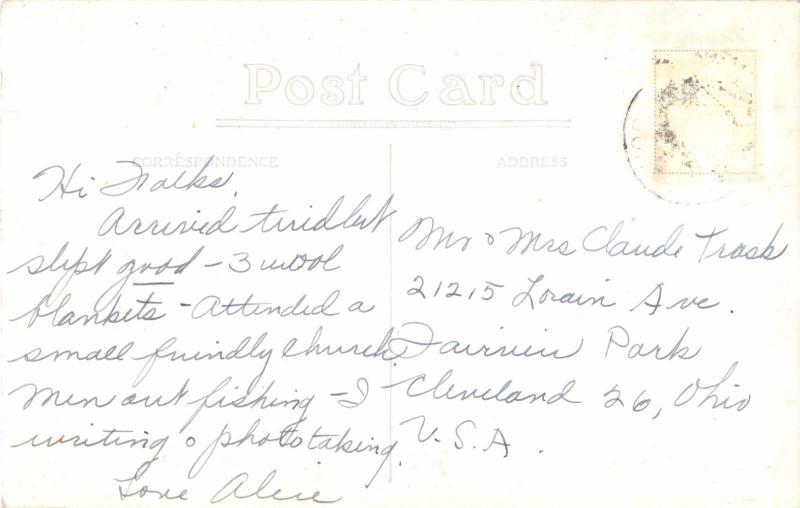 Post Card
CORRESPONDENCE
ADDRESS
Hi Folks,
Arrived tired but
slept good - 3 wool
blankets - Attended a
small friendly church.
Men out fishing - I
writing & phototaking.
Love Alice
Mr & Mrs Claude Trask
21215 Lorain Ave.
Fairview Park
Cleveland 26, Ohio
U.S.A.